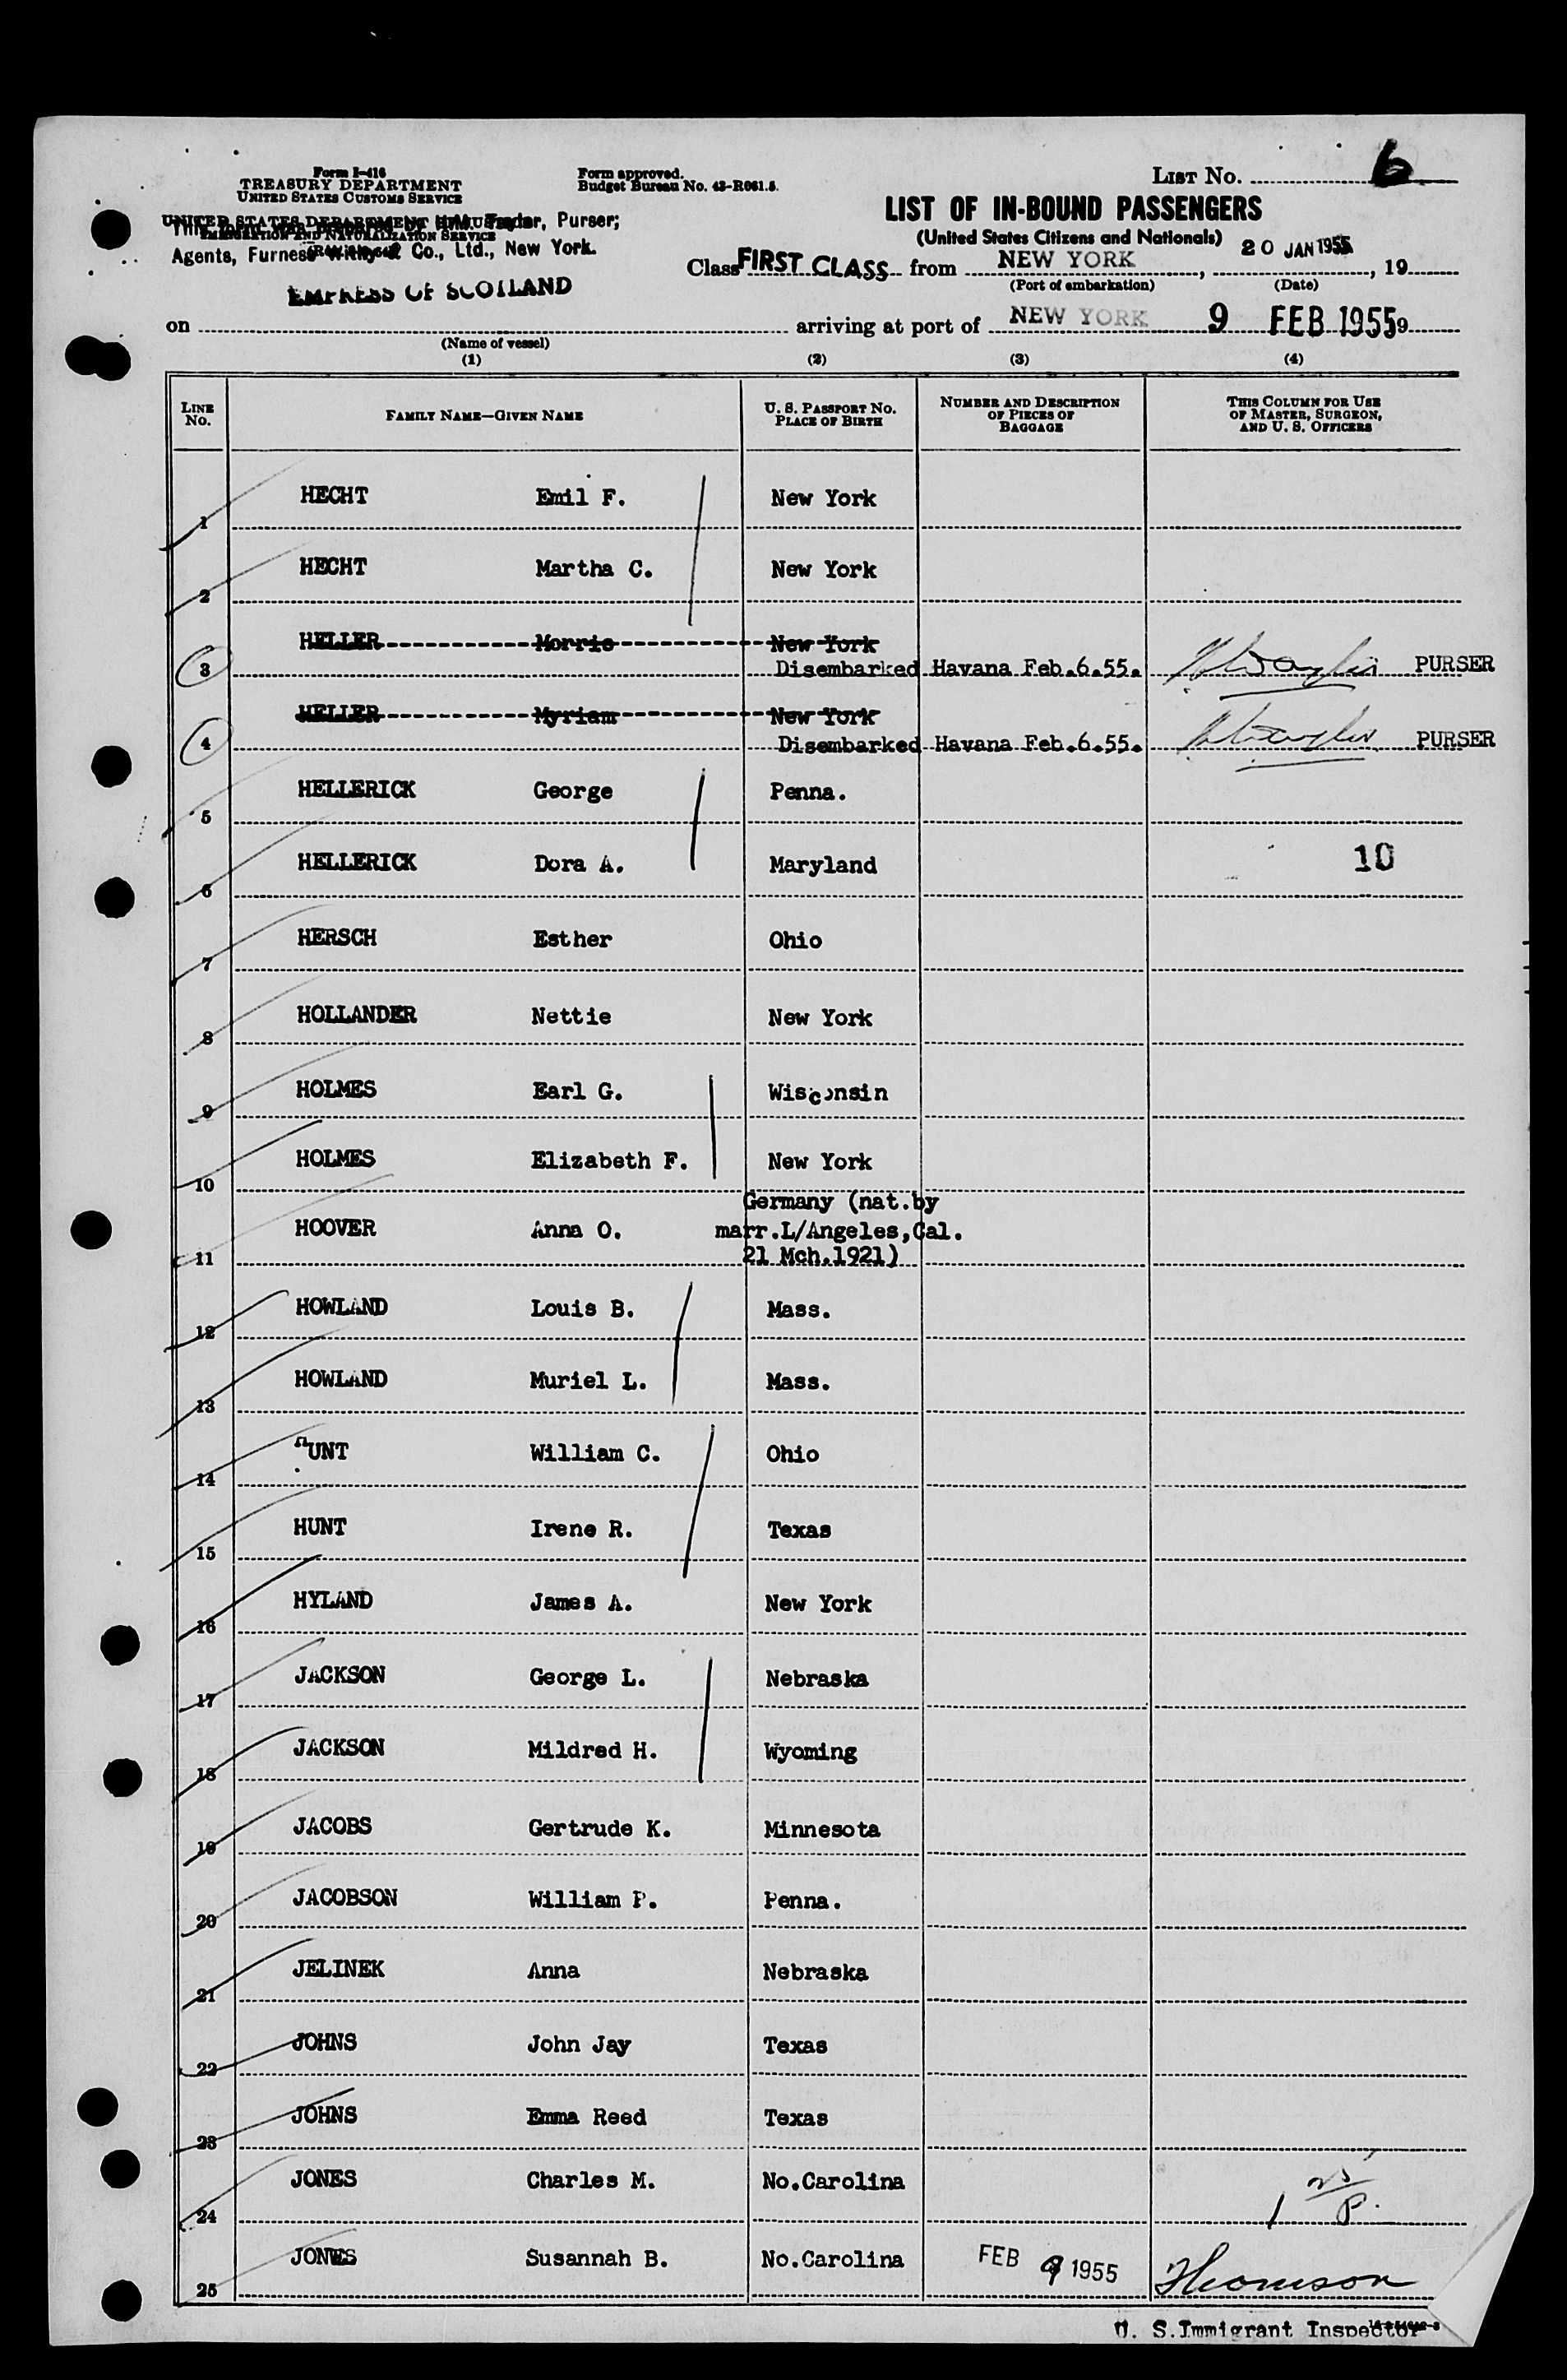 Form I-416
TREASURY DEPARTMENT
UNITED STATES CUSTOMS SERVICE
UNITED STATES DEPARTMENT OF JUSTICE
IMMIGRATION AND NATURALIZATION SERVICE
Purser;
Agents, Furness Withy & Co., Ltd., New York.
Form approved.
Budget Bureau No. 43-R061.5.
LIST NO. 6
LIST OF IN-BOUND PASSENGERS
(United States Citizens and Nationals)
Class FIRST CLASS from NEW YORK, 20 JAN 1955, 19
(Port of embarkation) (Date)
EMPRESS OF SCOTLAND
on arriving at port of NEW YORK 9 FEB 1955 9
(Name of vessel)
(1) (2) (3) (4)
LINE NO. FAMILY NAME—GIVEN NAME U. S. PASSPORT NO. PLACE OF BIRTH NUMBER AND DESCRIPTION OF PIECES OF BAGGAGE THIS COLUMN FOR USE OF MASTER, SURGEON, AND U. S. OFFICERS
1 HECHT Emil F. New York
2 HECHT Martha C. New York
3 HELLER Morris New York
Disembarked Havana Feb.6.55. PURSER
4 HELLER Myriam New York
Disembarked Havana Feb.6.55. PURSER
5 HELLERICK George Penna.
6 HELLERICK Dora A. Maryland 10
7 HERSCH Esther Ohio
8 HOLLANDER Nettie New York
9 HOLMES Earl G. Wisconsin
10 HOLMES Elizabeth F. New York
11 HOOVER Anna O. Germany (nat.by
marr.L/Angeles,Cal.
21 Mch.1921)
12 HOWLAND Louis B. Mass.
13 HOWLAND Muriel L. Mass.
14 HUNT William C. Ohio
15 HUNT Irene R. Texas
16 HYLAND James A. New York
17 JACKSON George L. Nebraska
18 JACKSON Mildred H. Wyoming
19 JACOBS Gertrude K. Minnesota
20 JACOBSON William P. Penna.
21 JELINEK Anna Nebraska
22 JOHNS John Jay Texas
23 JOHNS Emma Reed Texas
24 JONES Charles M. No.Carolina
25 JONES Susannah B. No.Carolina FEB 9 1955 Thomson
U. S.Immigrant Inspector